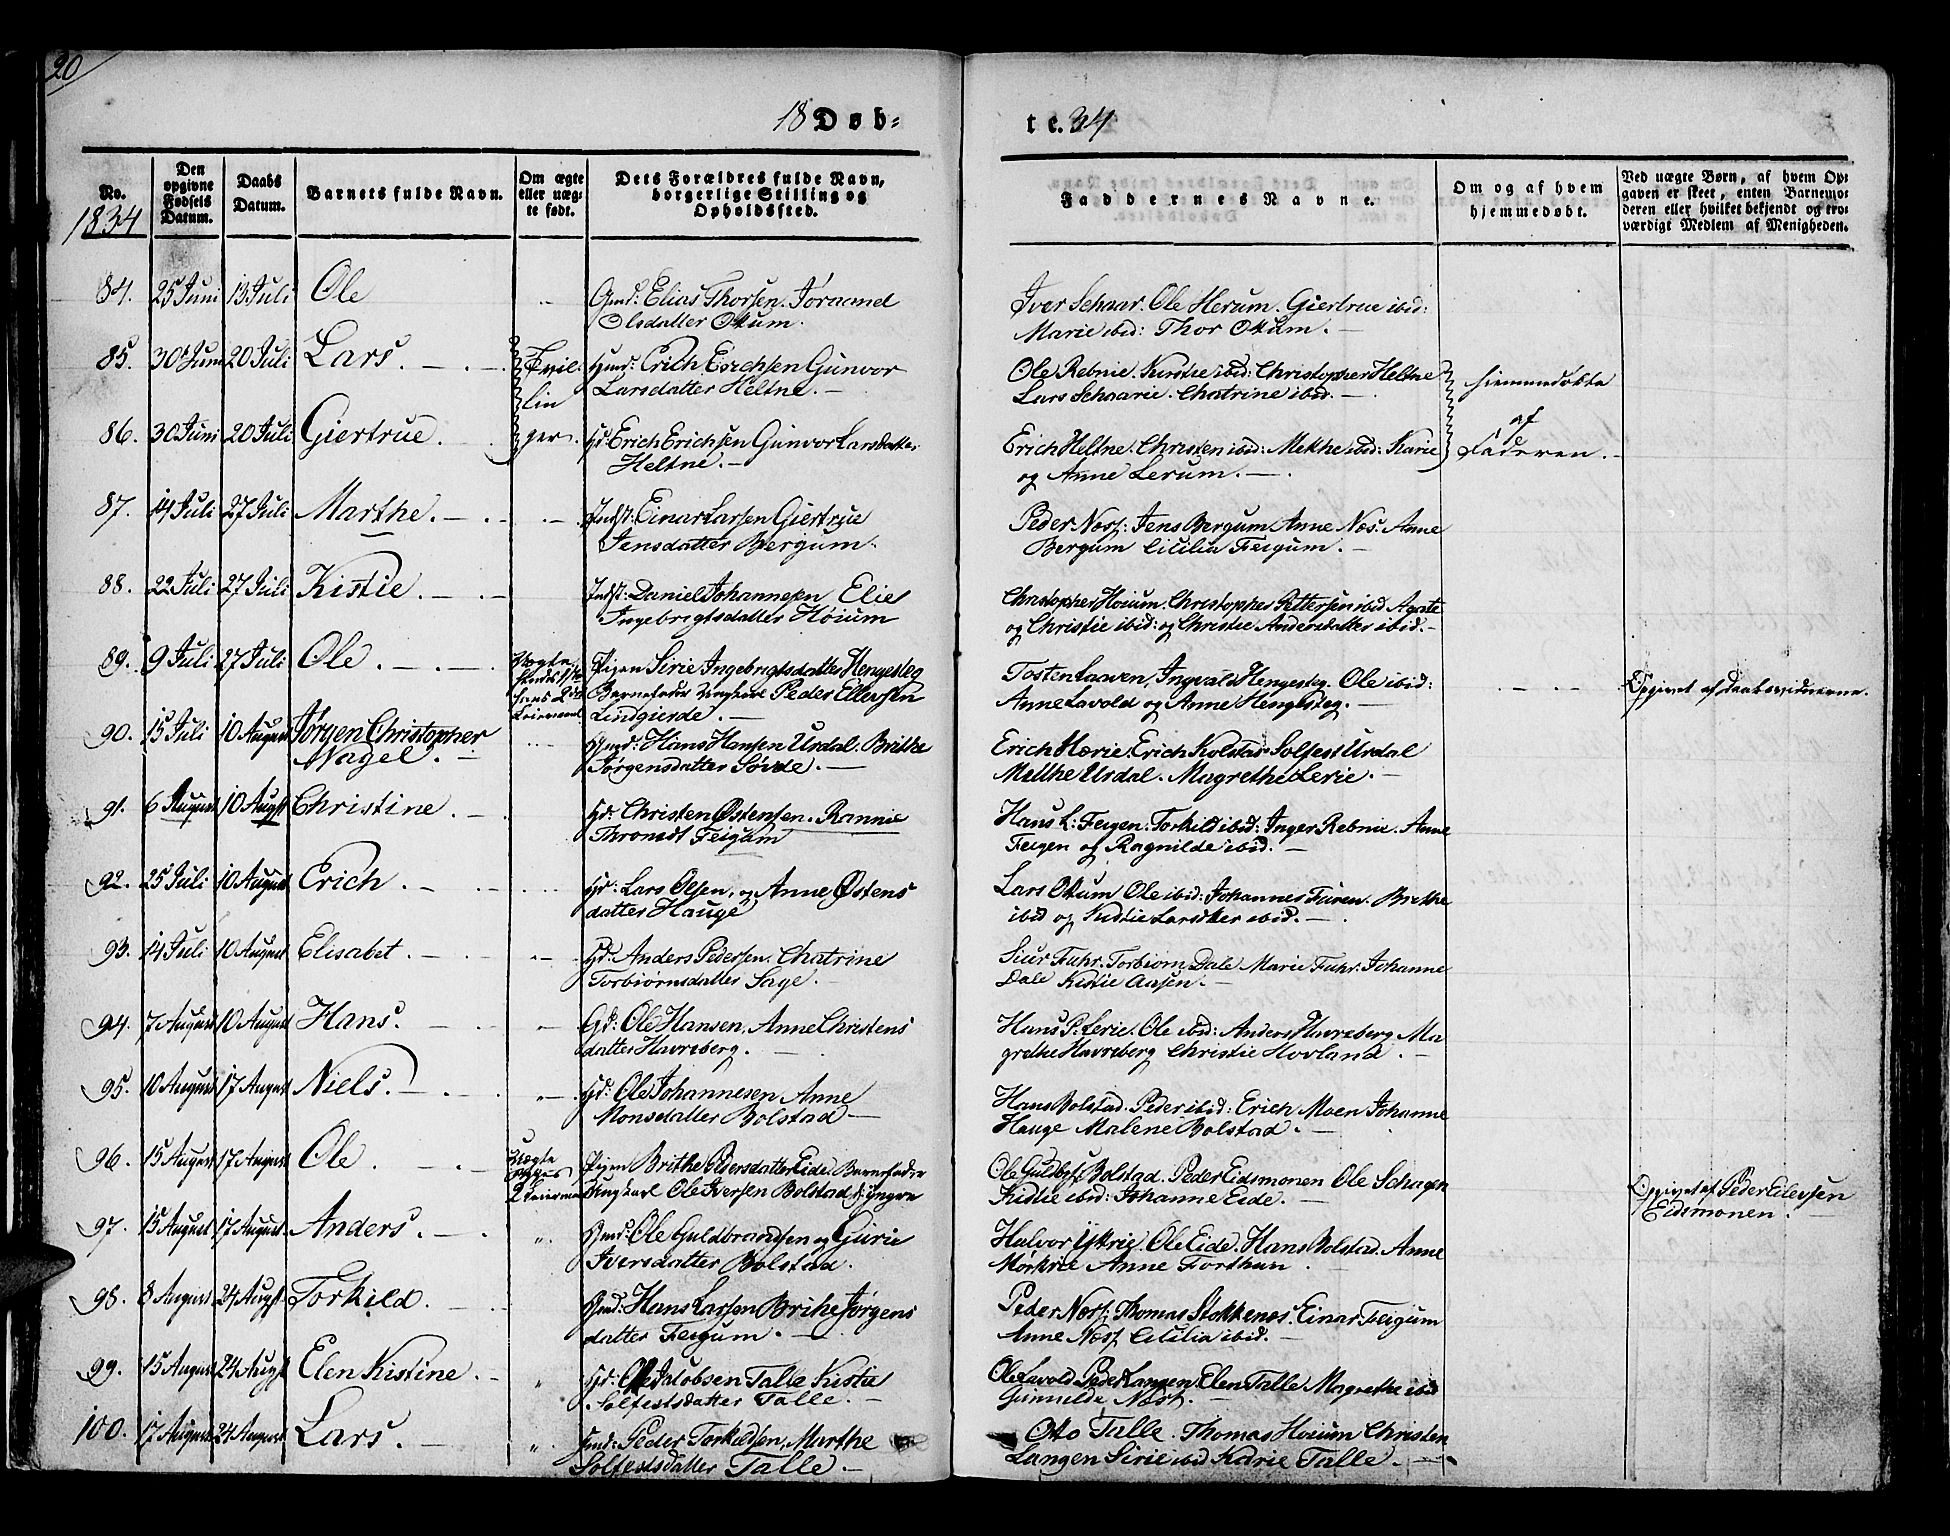 20
18 Døb=
te. 34
No.
Den opgivne Fødsels Datum.
Daabs Datum.
Barnets fulde Navn.
Om ægte eller uægte født.
Dets Forældres fulde Navn, borgerlige Stilling og Opholdssted.
Faddernes Navne.
Om og af hvem hjemmedøbt.
Ved uægte Børn, af hvem Opgaven er skeet, enten Barnemoderen eller hvilket bekjendt og troværdigt Medlem af Menigheden.
1834
84. 25 Juni 13 Juli Ole Gmd: Elias Thorsen. Joraand Iver Schaar. Ole Herum. Giertrue ibid:
Olsdatter Okum. Marie ibid: Thor Okum. —
85. 30 Juni 20 Juli Lars. — Tvil: Gmd: Erich Erichsen Gunvor Ole Rebnie. Kirstie ibid: Christopher Heltne hiemmedøbte
lin Larsdatter Heltne. — Lars Schaarie. Chatrine ibid. — af
86. 30 Juni 20 Juli Giertrue. ger. Gd: Erich Erichsen Gunvor Larsdatter Erich Heltne. Christen ibid: Mekthe ibid: Karie Faderen.
Heltne. — og Anne Lerum. —
87. 14 Juli 27 Juli Marthe. — Indst: Einar Larsen Giertrue Peder Næss: Jens Bergum Anne Næs. Anne
Jensdatter Bergum. Bergum Cicilia Feigum. —
88. 22 Juli 27 Juli Kistie. — Indst: Daniel Johannesen Elie Christopher Høium. Christopher Pettersen ibid Agate
Ingebrigtsdatter Høium og Christie ibid: og Christie Andersdatter ibid. —
89. 9 Juli 27 Juli Ole. — Uægte Pigen Sirie Ingebrigtsdatter Hengesteg Tosten Laaven, Ingvald Hengesteg. Ole ibid: Opgivet af Daabsvidnerne.
hans 2det Barnefader Ungkarl Peder Ellersen Anne Lavold og Anne Hengesteg. —
Leiermaal Lindgierde. —
90. 15 Juli 10 August Jørgen Christopher Gmd: Hans Hansen Urdal. Brithe Erich Hærie. Erich Kolstad Solfest Urdal
Nagel. — Jørgensdatter Søvde. — Metthe Urdal. Magrethe Lerie. —
91. 6 August 10 Augst Christine. — Gd: Christen Østensen. Rannie Hans L: Feigen. Torkild ibid: Inger Rebnie. Anne
Thronsdt Feigum Feigen og Ragnilde ibid. —
92. 25 Juli 10 August Erich. — Gd: Lars Olsen, og Anne Østens Lars Okum Ole ibid: Johannes Furen. Brithe
datter Hauge ibid og Kirstie Larsdtter ibid. —
93. 14 Juli 10 August Elisabet. — Gd: Anders Pedersen. Chatrine Siur Fuhr. Torbiørn Dale Marie Fuhr. Johanne
Torbiørnsdatter Sage. — Dale Kistie Aasen. —
94. 7 August 10 August Hans. — Gd: Ole Hansen, Anne Christens Hans P: Lerie. Ole ibid: Anders Havreberg. Ma
datter Havreberg. grethe Havreberg Christie Hovland. —
95. 10 August 17 August Niels. — Gd: Ole Johannesen Anne Hans Bolstad. Peder ibid: Erich Moen Johanne
Monsdatter Bolstad — Hauge Malene Bolstad. —
96. 15 August 17 August Ole. — Uægte Pigen Brithe Pedersdatter Eide. Barnefader Ole Guldbr Bolstad. Peder Eidsmonen Ole Schagen Opgivet af Peder Eilevsen
2 Leiermaal Ungkarl Ole Iversen Bolstad d: yngre Kistie ibid: Johanne Eide. — Eidsmonen. —
97. 15 August 17 August Anders. — Gmd: Ole Guldbrandsen og Gurie Halvor Yttrie. Ole Eide. Hans Bolstad. Anne
Iversdatter Bolstad. Mørkrie Anne Forthun.
98. 8 August 24 Augst Torkild. — Gmd: Hans Larsen Brithe Jørgens Peder Næss, Thomas Stokkenæs. Einar Feigum
datter Feigum. — Anne Næss. Cicilia ibid. —
99. 15 August 24 Augst Elen Kistine. — Gd: Ole Jacobsen Talle Kistie Ole Lavold. Peder Langen. Elen Talle Magrethe ibid
Solfestsdatter Talle. — Gunnilde Næss. —
100. 17 August 24 August Lars. — Gmd: Peder Torkildsen, Marthe Oto Talle. Thomas Høium Christen
Solfestsdatter Talle. — Langen Sirie ibid Karie Talle. —